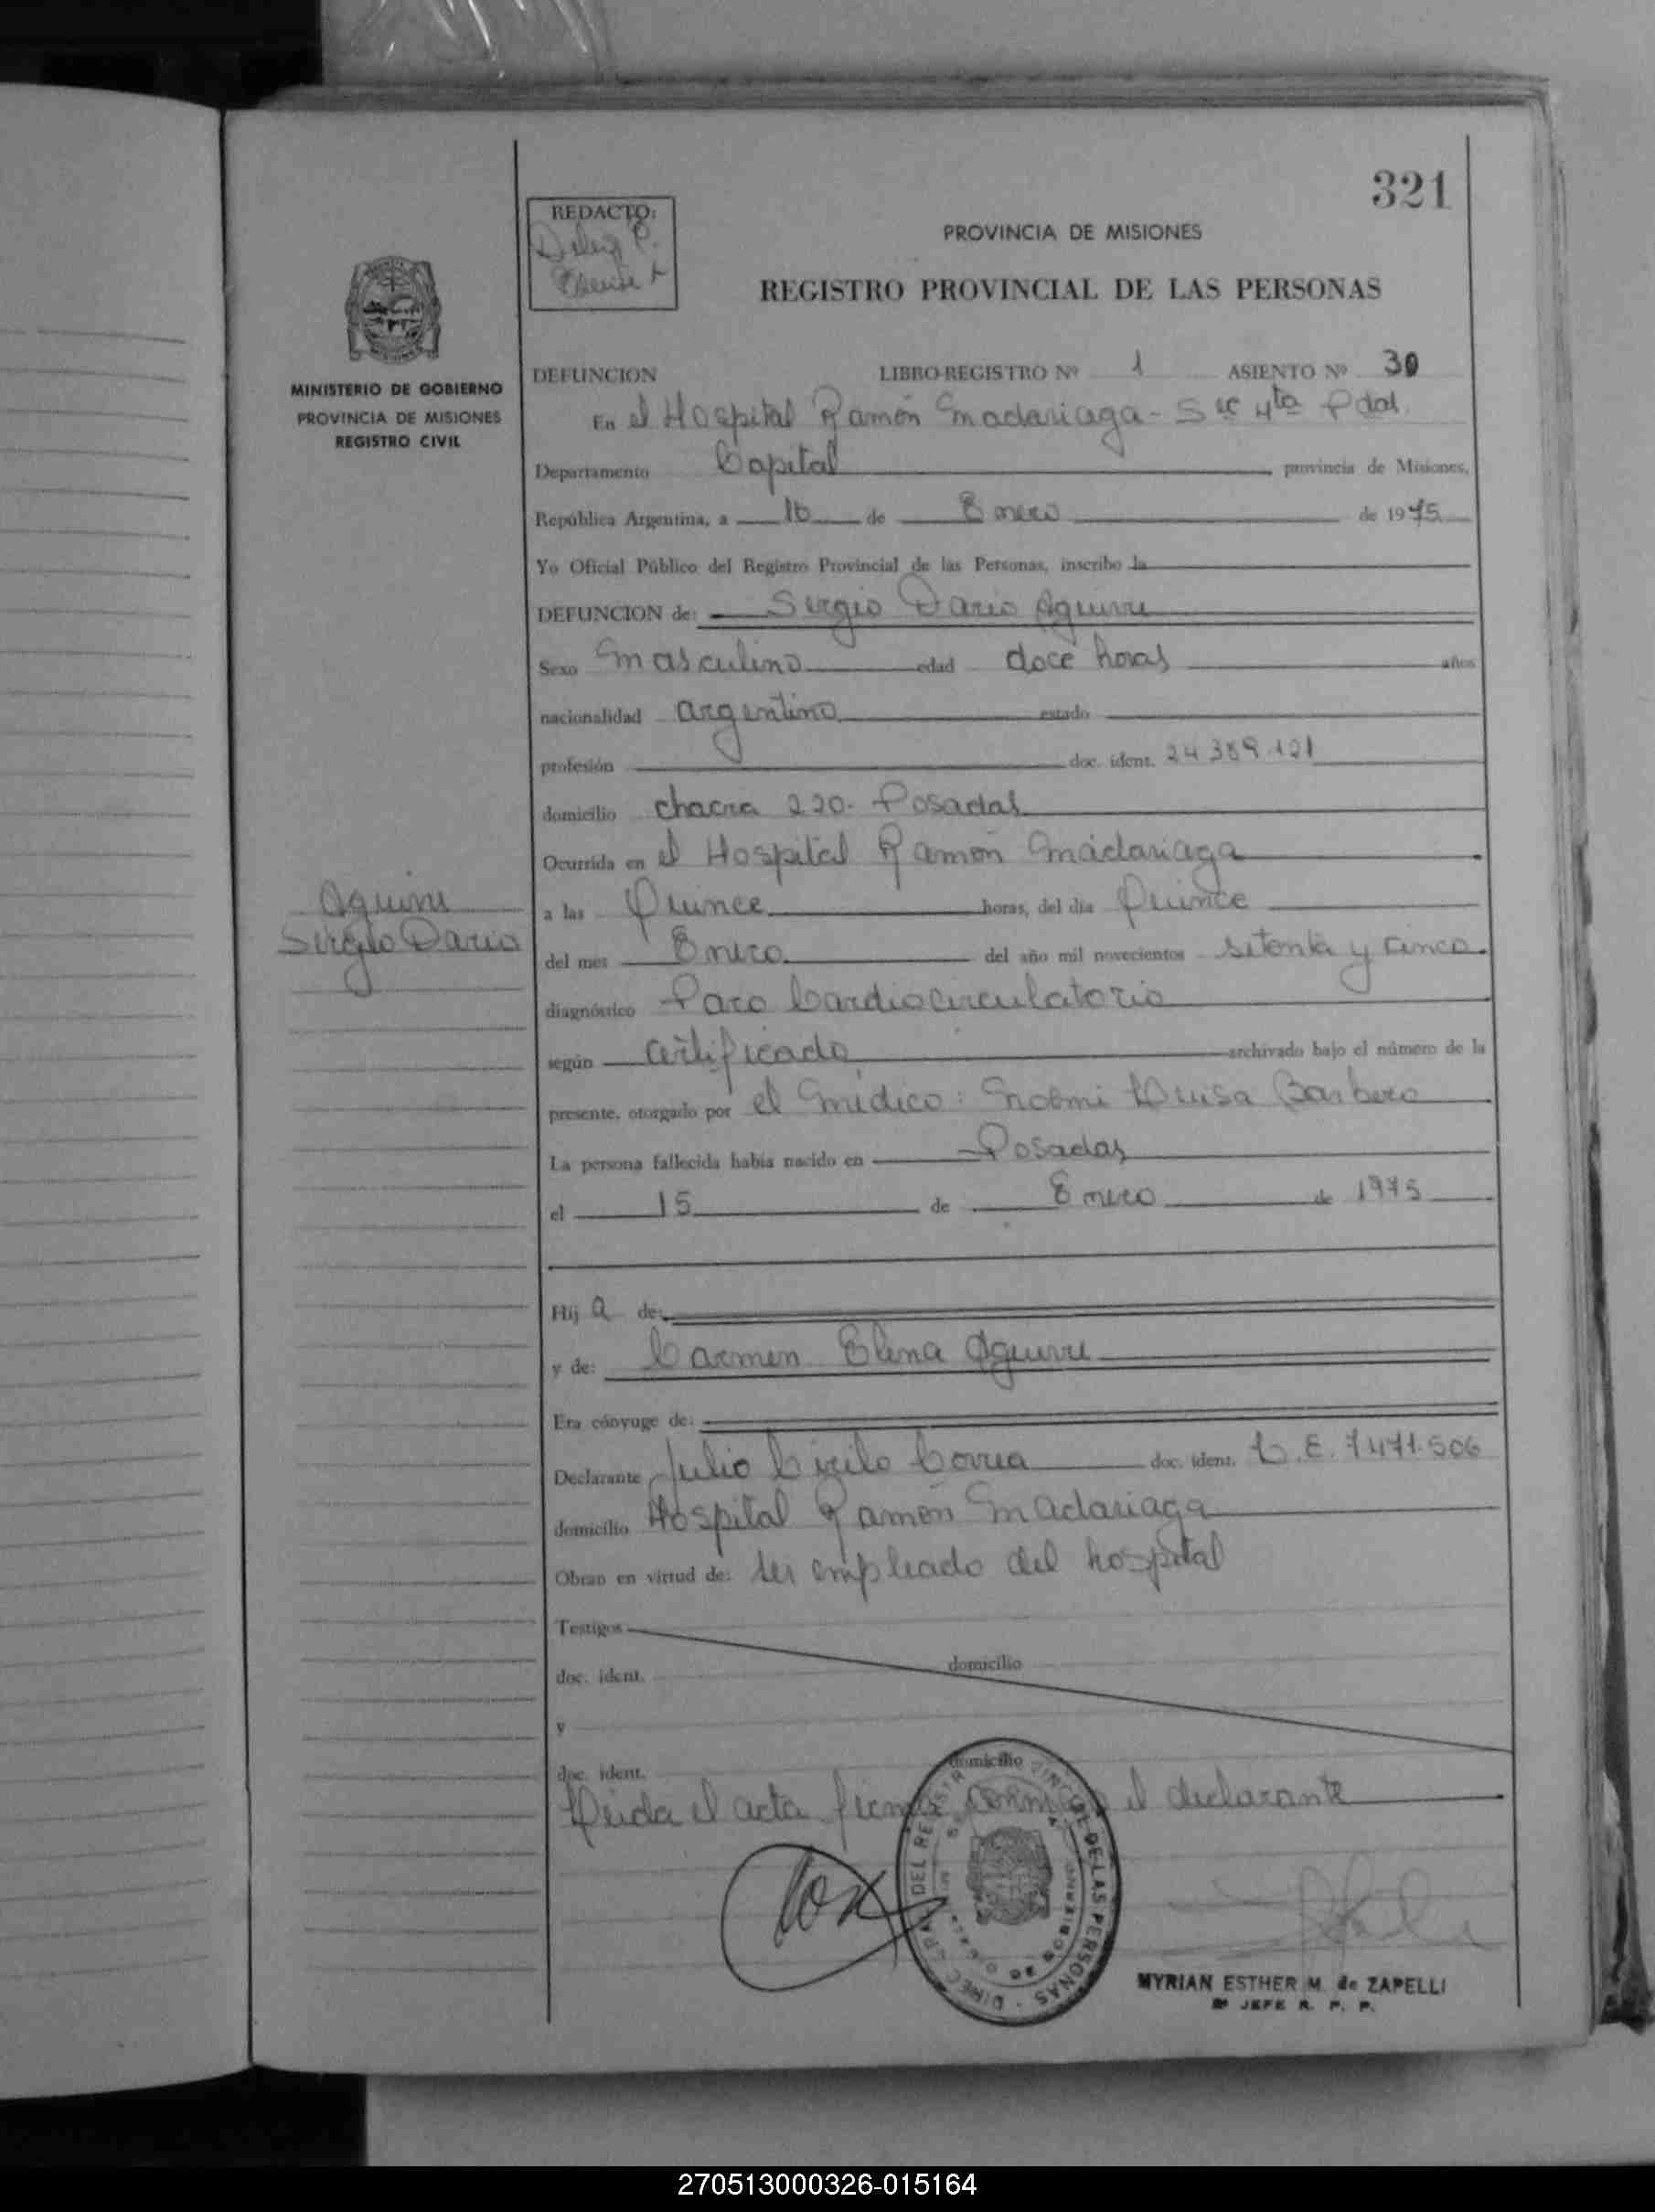 321
REDACTO:
PROVINCIA DE MISIONES
REGISTRO PROVINCIAL DE LAS PERSONAS
MINISTERIO DE GOBIERNO
PROVINCIA DE MISIONES
REGISTRO CIVIL
DEFUNCION LIBRO-REGISTRO Nº 1 ASIENTO Nº 30
En el Hospital Ramón Madariaga - Sec 4ta Pdas.
Departamento Capital provincia de Misiones,
República Argentina, a 16 de Enero de 1975
Yo Oficial Público del Registro Provincial de las Personas, inscribo la
DEFUNCION de: Sergio Dario Aguirre
Sexo Masculino edad doce horas años
nacionalidad argentino estado
profesión doc. ident. 24.389.121
domicilio chacra 220. Posadas
Ocurrida en el Hospital Ramón Madariaga
Aguirre
Sergio Dario
a las Quince horas, del día Quince
del mes Enero del año mil novecientos setenta y cinco
diagnóstico Paro Cardiocirculatorio
según certificado archivado bajo el número de la
presente, otorgado por el Médico: Noemi Luisa Barbero
La persona fallecida había nacido en Posadas
el 15 de Enero de 1975
Hij a de:
y de: Carmen Elena Aguirre
Era cónyuge de:
Declarante Julio Cirilo Correa doc. ident. L.E. 7.471.506
domicilio Hospital Ramón Madariaga
Obran en virtud de: ser empleado del hospital
Testigos
doc. ident. domicilio
y
doc. ident. domicilio
Leida el acta firma conmigo el declarante
MYRIAN ESTHER M. de ZAPELLI
JEFE R. P. P.
270513000326-015164